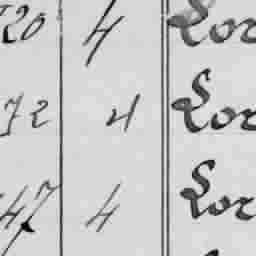 720 4 Lor
72 4 Lor
47 4 Lor